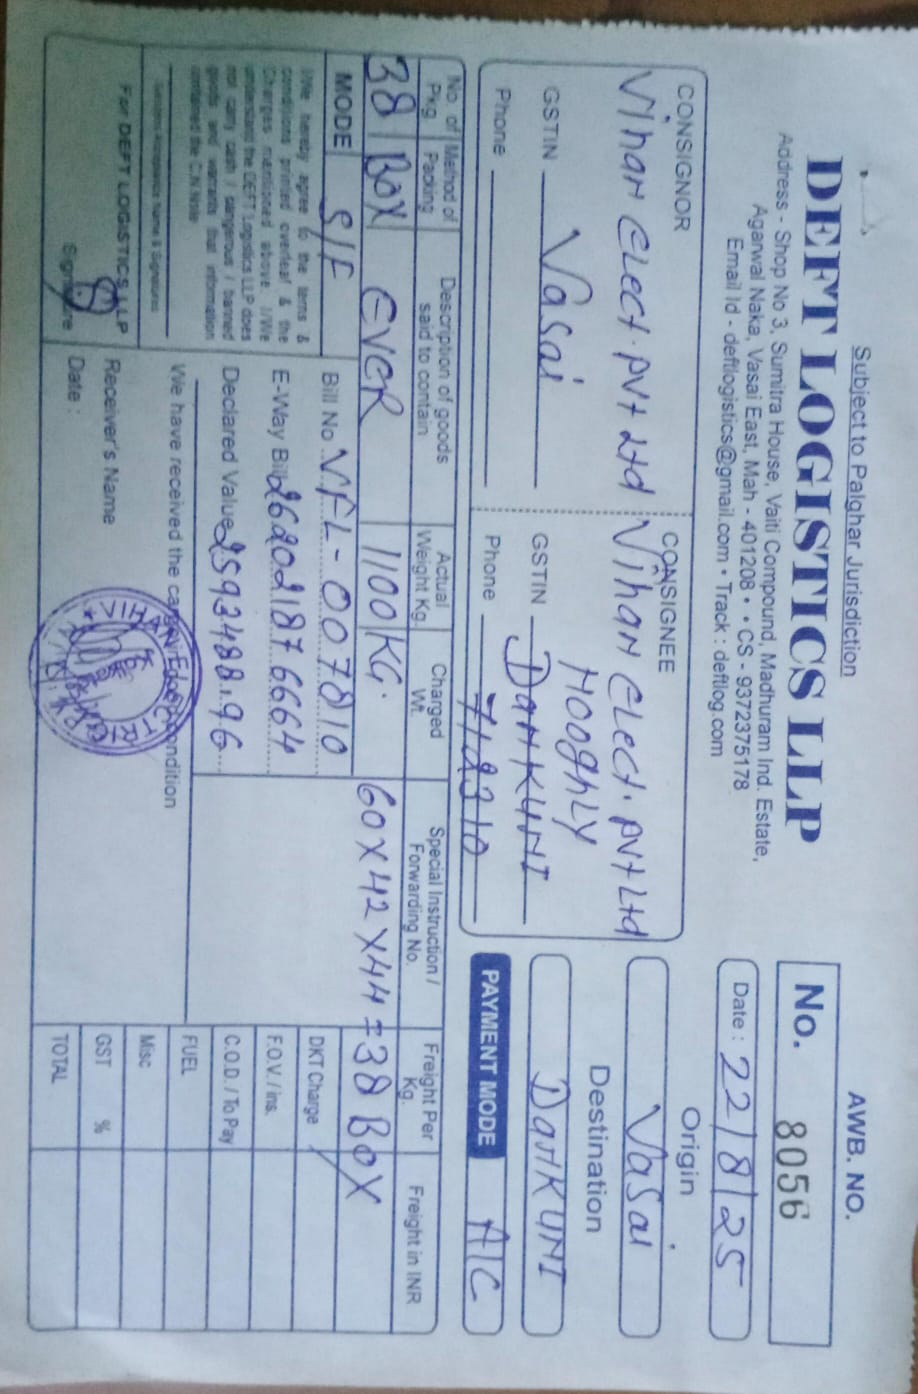 Subject to Palghar Jurisdiction
DEFT LOGISTICS LLP
Address - Shop No 3, Sumitra House, Vaiti Compound, Madhuram Ind. Estate,
Agarwal Naka, Vasai East, Mah - 401208 • • CS - 9372375178
Email Id - deftlogistics@gmail.com • Track : deftlog.com
AWB. NO.
No. 8056
Date : 22/8/25
CONSIGNOR
Vihan Elect. Pvt Ltd
Vasai
GSTIN
Phone
CONSIGNEE
Vihan Elect. Pvt Ltd
HooghLY
GSTIN DanKUNI
Phone 712310
Origin
Vasai
Destination
DanKUNI
PAYMENT MODE A/C
No. of Pkg. Method of Packing Description of goods said to contain Actual Weight Kg. Charged Wt. Special Instruction / Forwarding No. Freight Per Kg. Freight in INR
38 BOX EVER 1100 KG.
60 X 42 X 44 = 38 BOX
MODE S/F
Bill No. VFL-007810
E-Way Bill 262021876664
Declared Value 2593488.96
I/We hereby agree to the terms &
conditions printed overleaf & the
Charges mentioned above. I/We
understand the DEFT Logistics LLP does
not carry cash / dangerous / banned
goods and warrants that information
contained the C.N Note
For DEFT LOGISTICS LLP
Signature
We have received the condition
Receiver's Name
Date :
VIHAN
DKT Charge
F.O.V. / ins.
C.O.D. / To Pay
FUEL
Misc
GST %
TOTAL